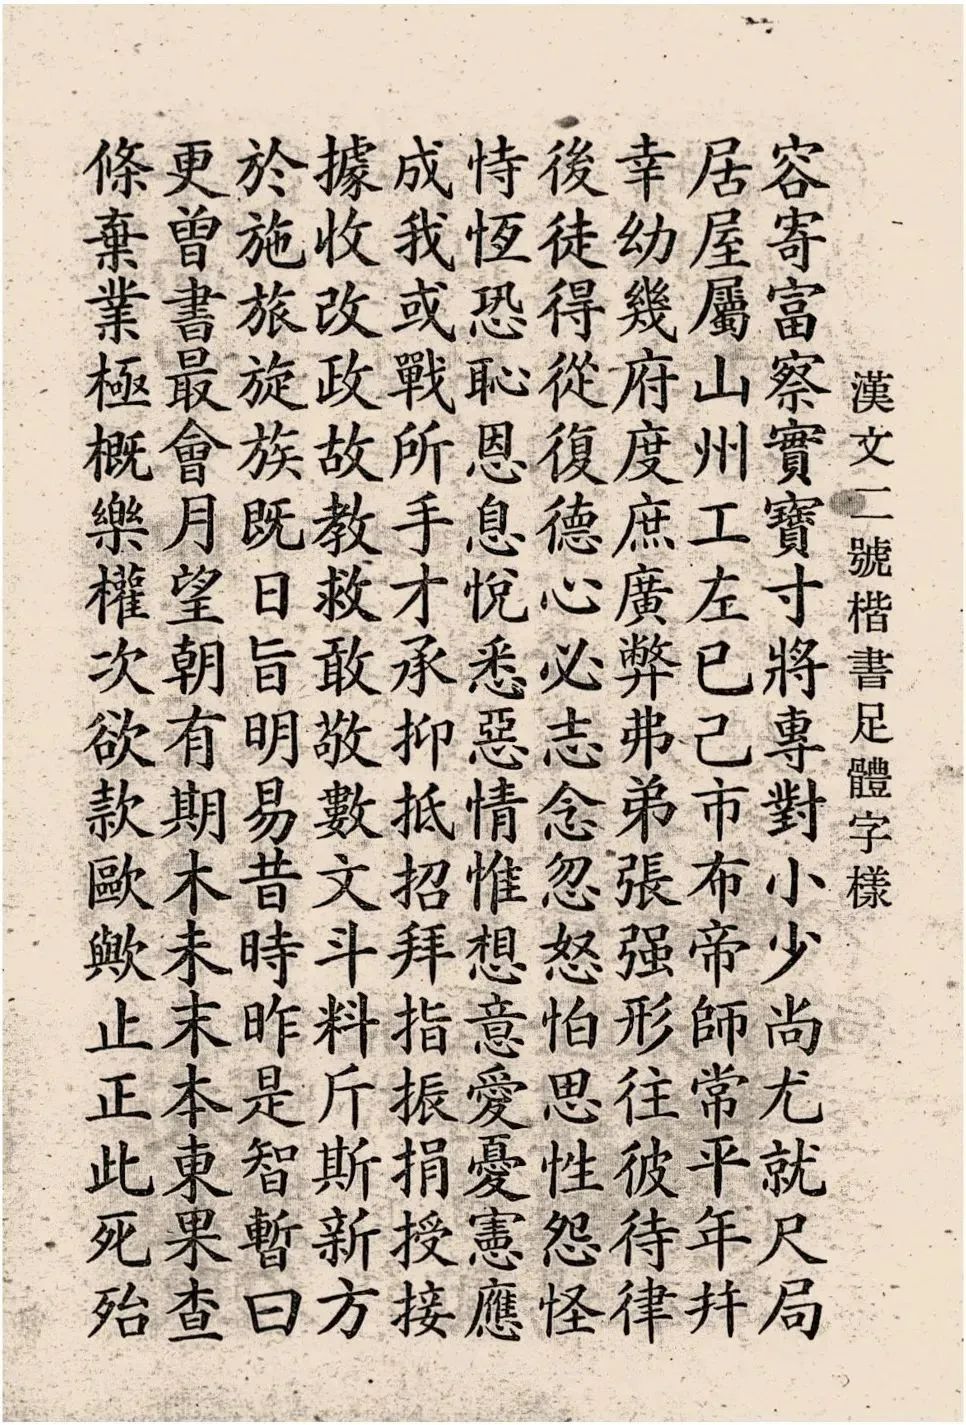 漢文二號楷書足體字樣
容寄富察實寶寸將專對小少尚尤就尺局
居屋屬山州工左已己市布帝師常平年幷
幸幼幾府度庶廣弊弗弟張强形往彼待律
後徒得從復德心必志念忽怒怕思性怨怪
恃恆恐恥恩息悅悉惡情惟想意愛憂憲應
成我或戰所手才承抑抵招拜指振捐授接
據收改政故教救敢敬數文斗料斤斯新方
於施旅旋族既日旨明易昔時昨是智暫曰
更曾書最會月望朝有期木未末本東果查
條棄業極概樂權次欲款歐歟止正此死殆